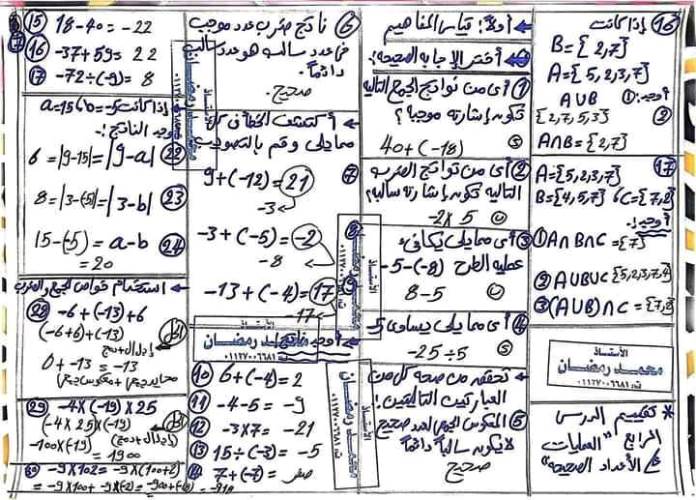 16 إذا كانت
B={2,7}
A={5,2,3,7}
أوجد: ① A∪B
{2,7,5,3} ②
A∩B={2,7}
17
A={5,2,3,7}
B={4,5,7} ، C={7,2}
أوجد:
① A∩B∩C={7}
② A∪B∪C {5,2,3,7,4}
③ (A∪B)∩C={7,2}
الأستاذ
محمد رمضان
ت: ٠١١٢٧٠٠٦٦٨١
* تقييم الدرس
الرابع "العمليات
ع/ الأعداد الصحيحة"
← أولاً: قياس المفاهيم
← أختر الإجابة الصحيحة:
① أي من نواتج الجمع التالية
تكون إشارته موجبة؟
40+(-18)
② أي من نواتج الضرب
التالية تكون إشارته سالبة؟
-2×5
③ أي مما يلي يكافئ
عملية الطرح -5-(-8)
8-5
④ أي مما يلي يساوي -5
-25÷5
← تحقق من صحة كل من
العبارتين التاليتين:
⑤ المعكوس الجمعي لعدد صحيح
لا يكون سالباً دائماً
صحيح
⑥ ناتج ضرب عدد موجب
في عدد سالب هو عدد سالب
دائماً.
صحيح
← أكتشف الخطأ في كل
مما يلي وقم بالتصويب
⑦ 9+(-12)=21
-3
⑧ -3+(-5)=-2
-8
⑨ -13+(-4)=17
-17
← أوجد ناتج
الأستاذ
محمد رمضان
ت: ٠١١٢٧٠٠٦٦٨١
⑩ 6+(-4)=2
⑪ -4-5= -9
⑫ -3×7= -21
⑬ 15÷(-3)= -5
⑭ 7+(-7)= صفر
⑮ 18-40= -22
⑯ -37+59= 22
⑰ -72÷(-9)= 8
إذا كانت a=15 ، b=-5
أوجد الناتج:
㉒ |9-a|=|9-15|= 6
㉓ |3-b|=|3-(-5)|= 8
㉔ a-b = 15-(-5)
= 20
← استخدام خواص الجمع والضرب
㉘ -6+(-13)+6
(-6+6)+(-13)
إبدال + دمج
0+ -13 = -13
محايد جمعي + معكوس جمعي
㉙ -4×(-19)×25
(-4×25)×(-19)
(إبدال + دمج)
-100×(-19)
= 1900
㉚ -9×102= -9×(100+2)
= -9×100+ -9×(2)= -900+(-18)= -918